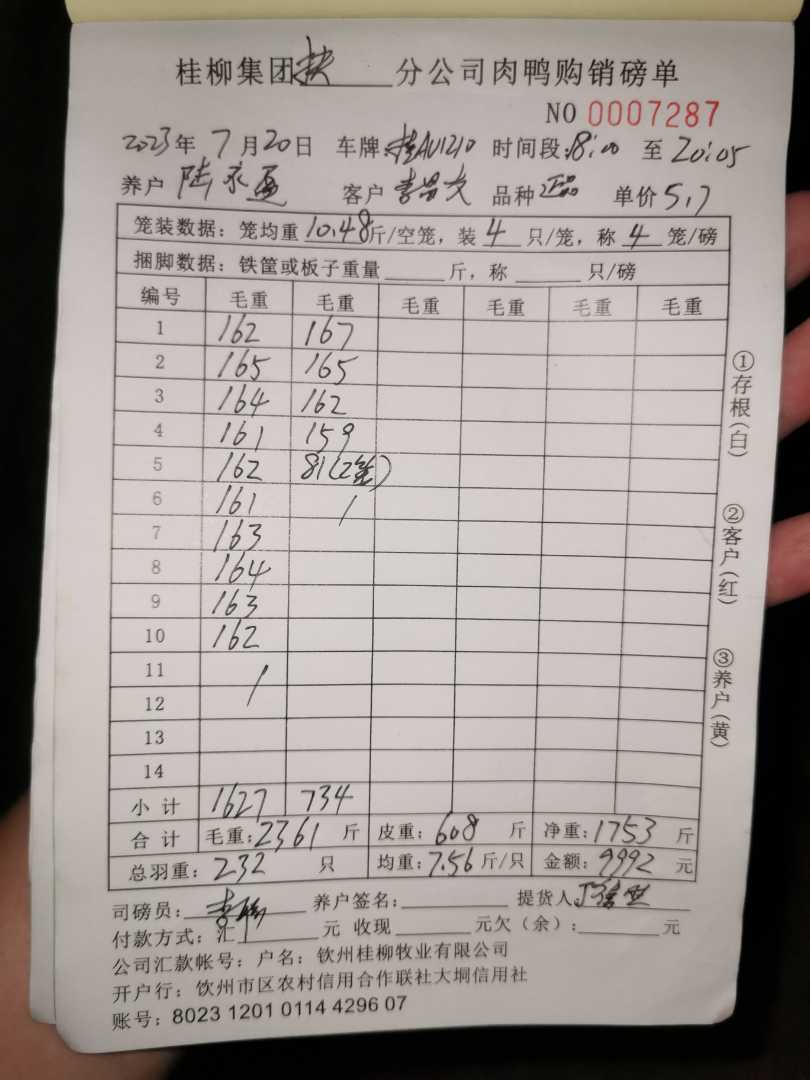 桂柳集团扶分公司肉鸭购销磅单
NO 0007287
2023年7月20日 车牌:桂AU1210 时间段:18:00 至 20:05
养户 陆永 客户 李 品种 正品 单价 5.7
笼装数据：笼均重 10.48 斤/空笼，装 4 只/笼，称 4 笼/磅
捆脚数据：铁筐或板子重量 斤，称 只/磅
编号 毛重 毛重 毛重 毛重 毛重 毛重
1 162 167
2 165 165
3 164 162
4 161 159
5 162 81(2笼)
6 161 /
7 163
8 164
9 163
10 162
11 /
12
13
14
小计 1627 734
合计 毛重:2361 斤 皮重:608 斤 净重:1753 斤
总羽重:232 只 均重:7.56 斤/只 金额:9992 元
司磅员:李 养户签名: 提货人
付款方式：汇 元 收现 元欠（余）: 元
公司汇款帐号：户名：钦州桂柳牧业有限公司
开户行：饮州市区农村信用合作联社大垌信用社
账号：8023 1201 0114 4296 07
①存根(白)
②客户(红)
③养户(黄)